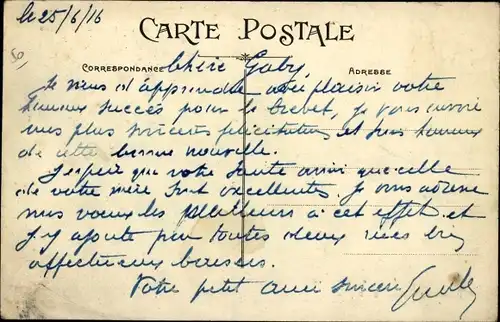 le 25/6/16
CARTE POSTALE
CORRESPONDANCE
ADRESSE
Chère Gaby
Je viens d'apprendre avec plaisir votre
heureux succès pour le Brevet, je vous envoie
mes plus sincères félicitations et suis heureux
de cette bonne nouvelle.
J'espère que votre santé ainsi que celle
de votre mère sont excellentes. Je vous adresse
mes voeux les meilleurs à cet effet et
j'y ajoute pour toutes deux mes bien
affectueux baisers.
Votre petit ami sincère